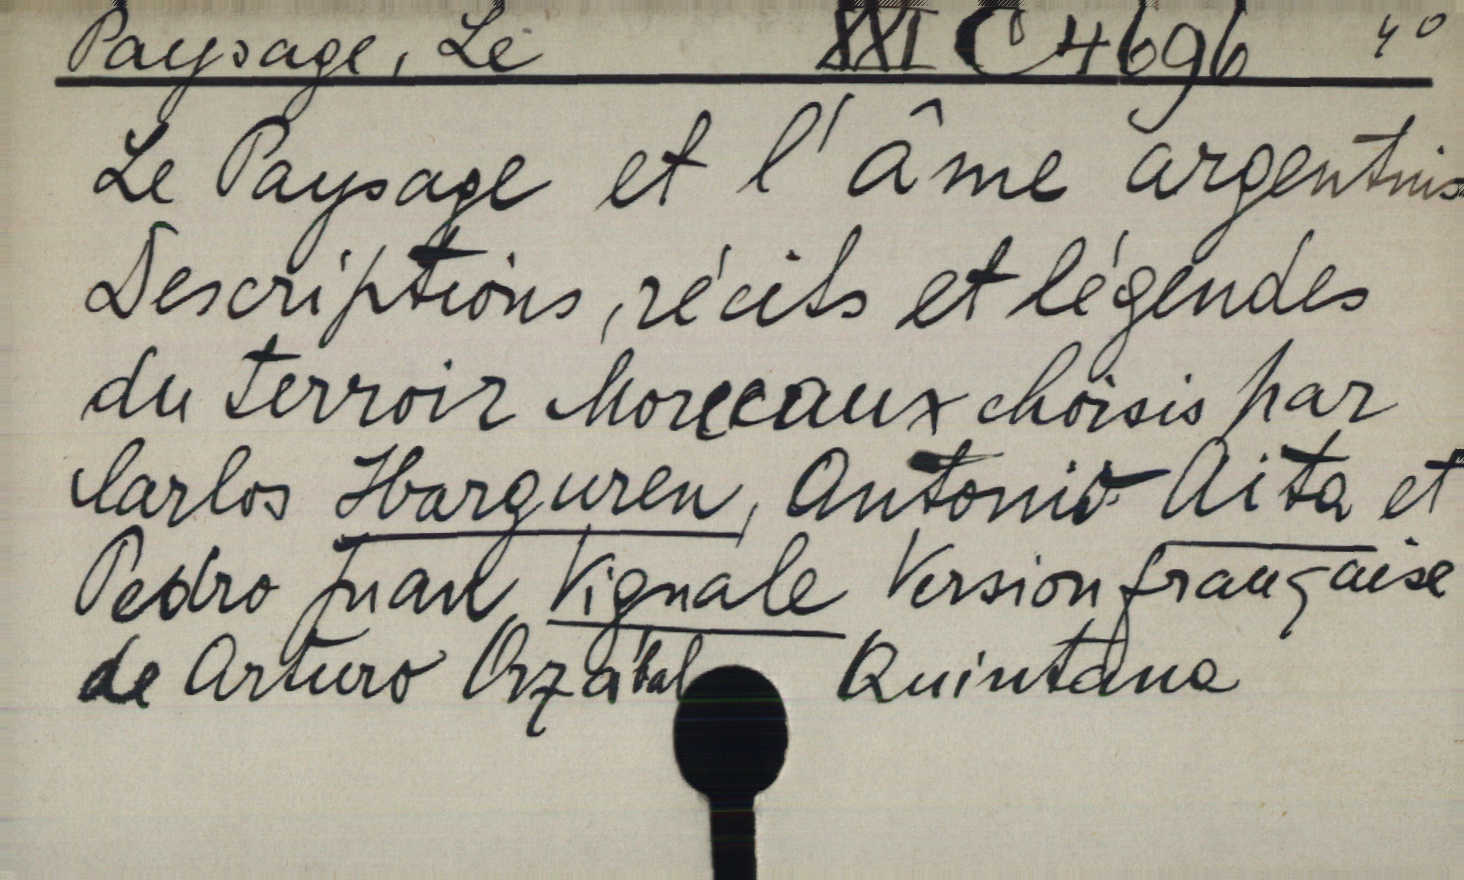 Paysage, Le XXI C 4696 4°
Le Paysage et l'âme argentins
Descriptions, récits et légendes
du terroir Morceaux choisis par
Carlos Ibarguren, Antonio Aita et
Pedro Juan Vignale Version française
de Arturo Orzábal Quintana